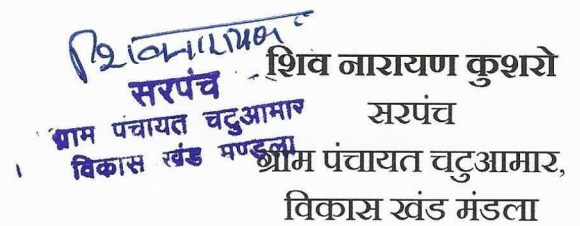 शिवनारायण
सरपंच
ग्राम पंचायत चटुआमार
विकास खंड मण्डला
शिव नारायण कुशरो
सरपंच
ग्राम पंचायत चटुआमार,
विकास खंड मंडला